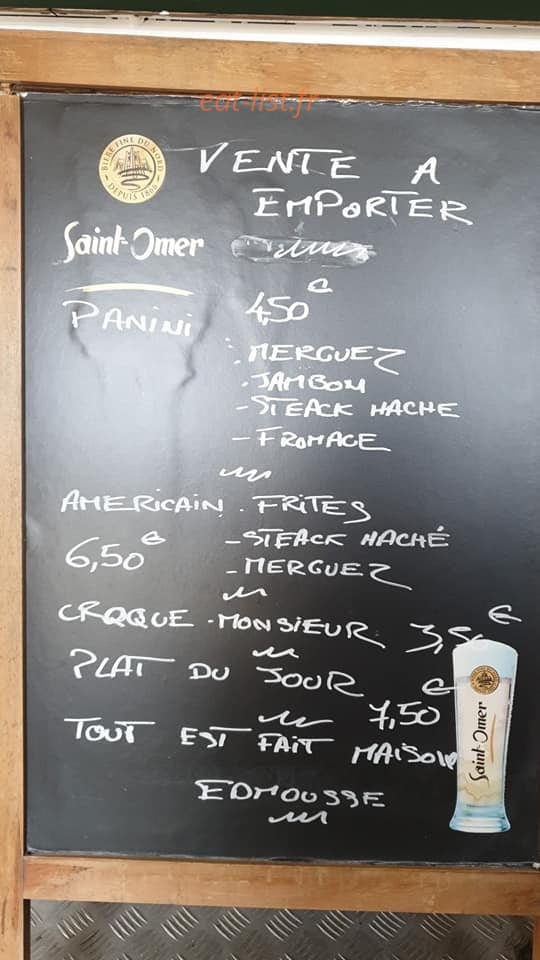 eat-list.fr
BIÈRE FINE DU NORD
DEPUIS 1866
VENTE A
EMPORTER
Saint-Omer
PANINI 4,50€
. MERGUEZ
. JAMBON
- STEACK HACHE
- FROMAGE
AMERICAIN . FRITES
6,50€ - STEACK HACHÉ
- MERGUEZ
CROQUE . MONSIEUR 3,5 €
PLAT DU JOUR
7,50€
TOUT EST FAIT MAISON
EDMOUSSE
Saint-Omer